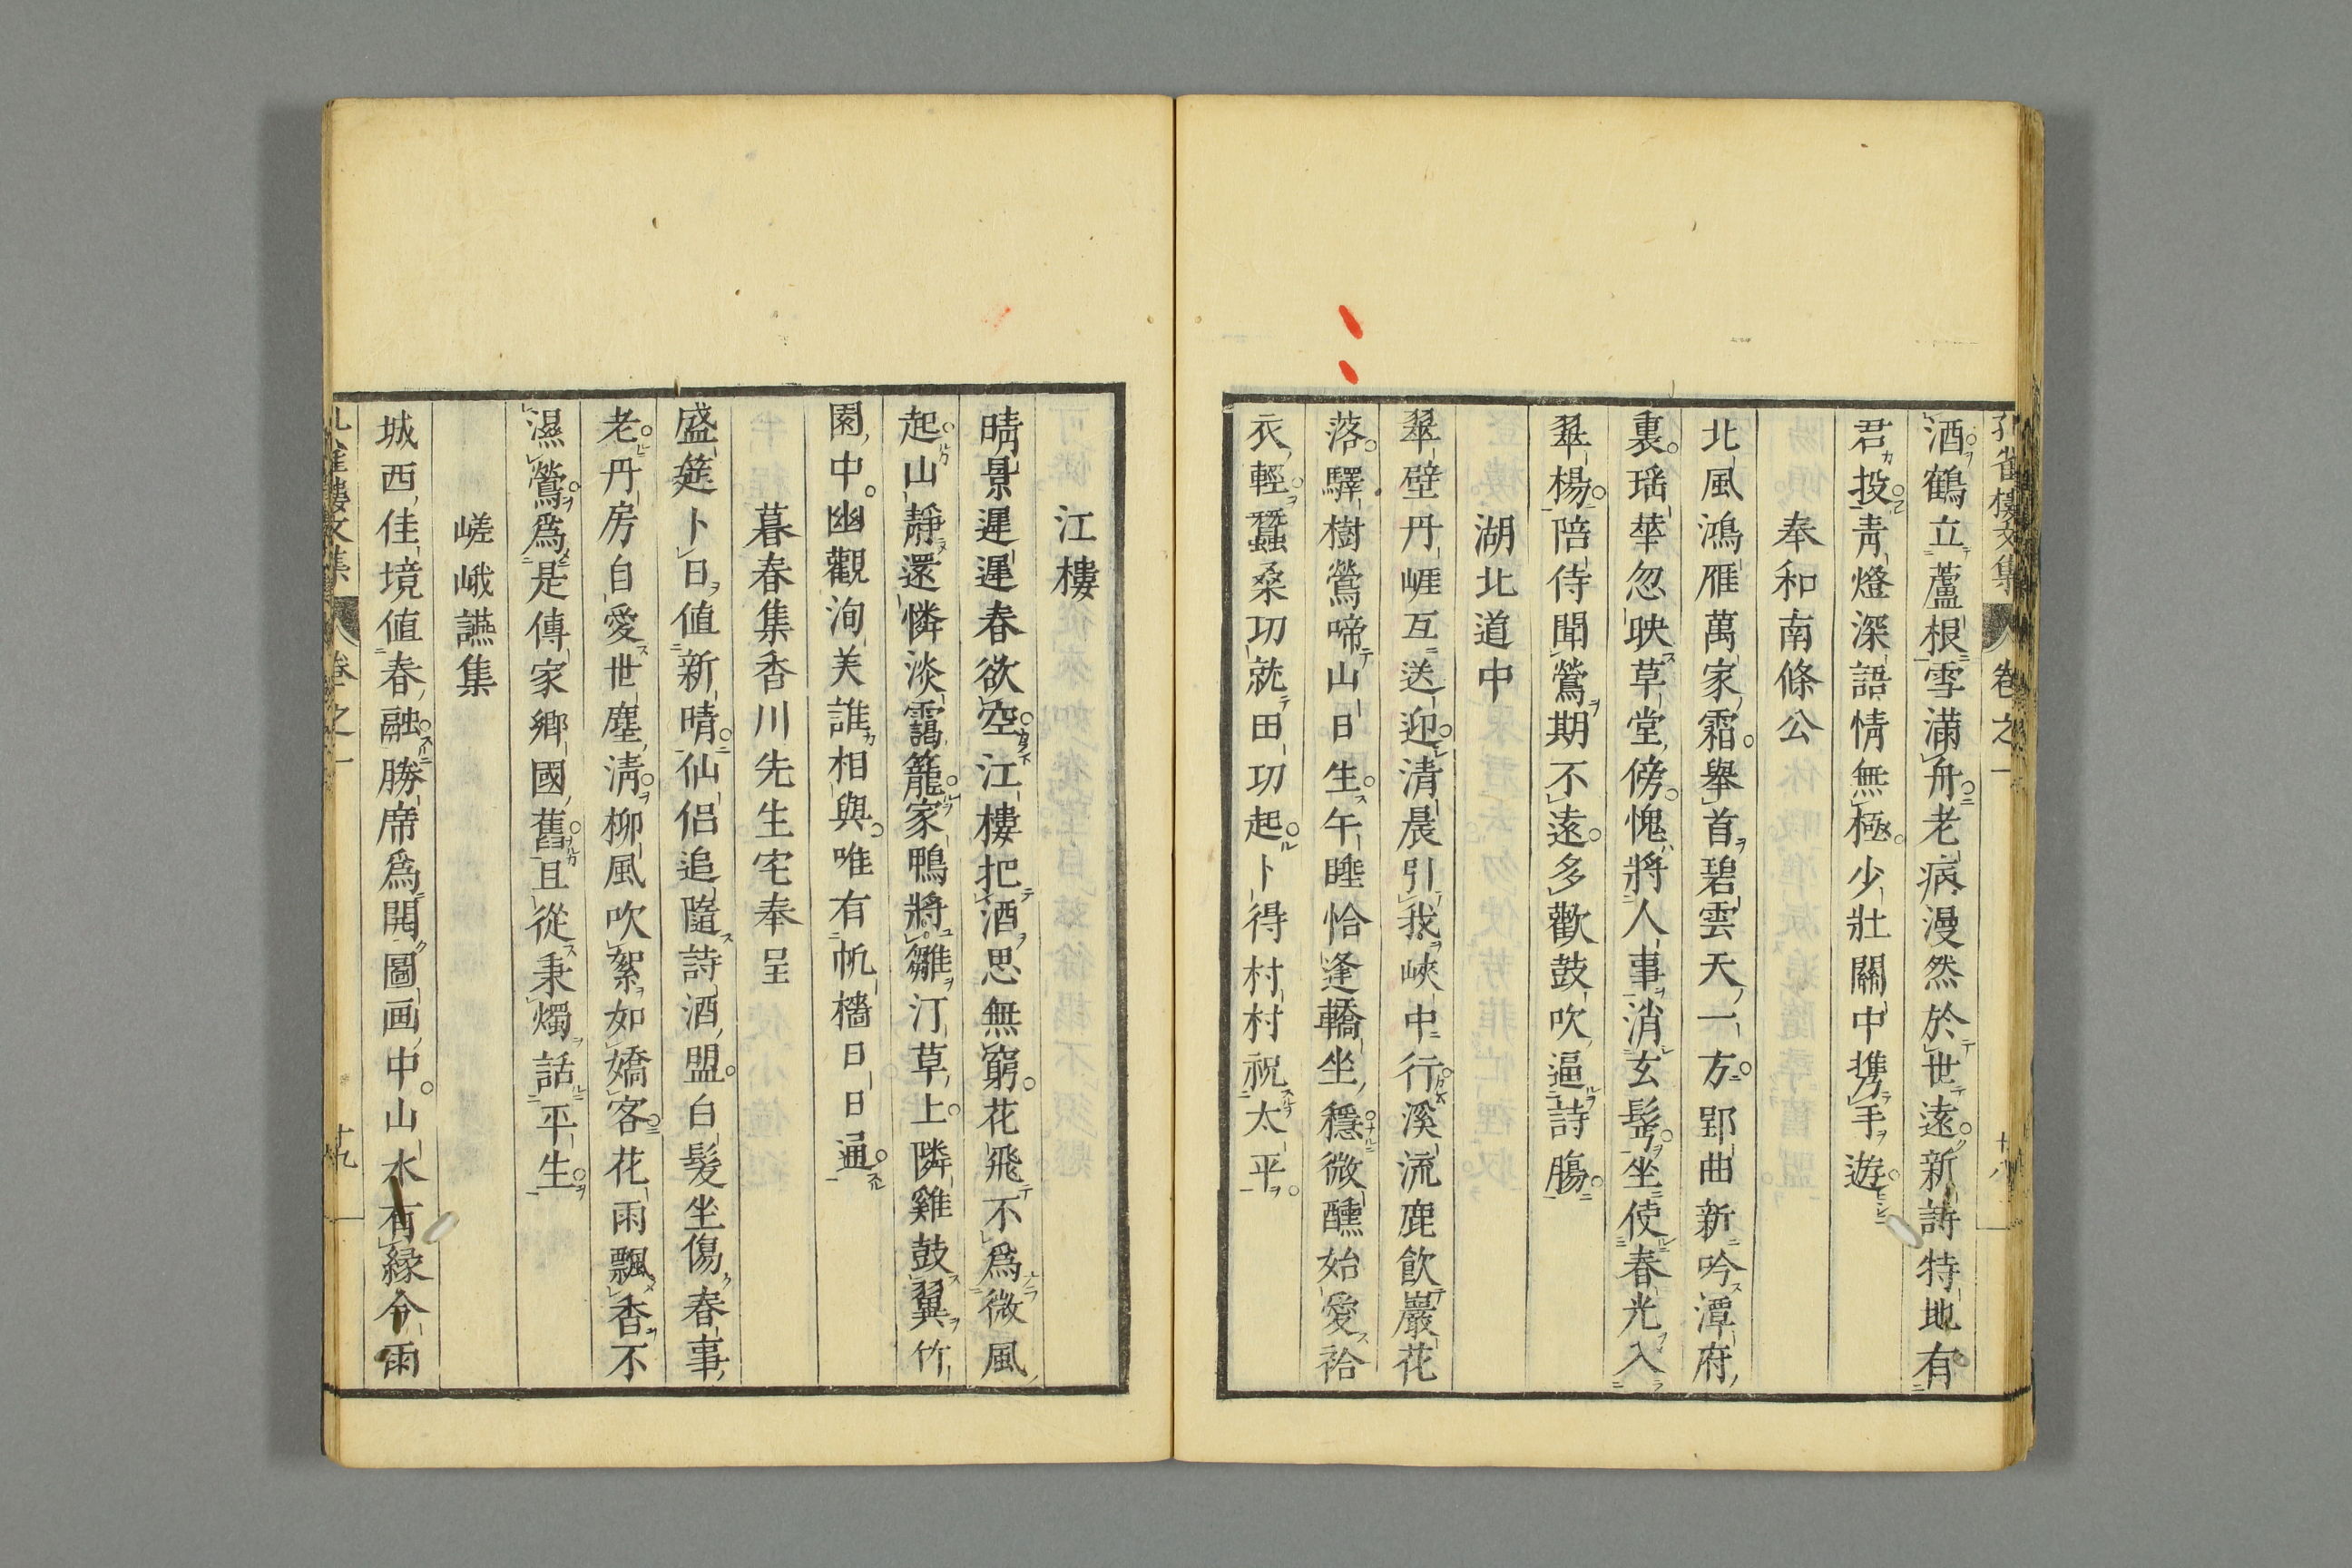 孔雀樓文集 卷之一 十八
酒鶴立蘆根雪滿舟老病漫然於世遠新詩特地有
君投青燈深語情無極少壯關中携手遊
奉和南條公
北風鴻雁萬家霜舉首碧雲天一方郢曲新吟潭府
裏瑶華忽映草堂傍愧將人事消玄髩坐使春光入
翠楊陪侍聞鶯期不遠多歡鼓吹逼詩膓
湖北道中
翠壁丹崕互送迎清晨引我峽中行溪流鹿飲巖花
落驛樹鶯啼山日生午睡恰逢轎坐穩微醺始愛袷
衣輕蠶桑功就田功起卜得村村祝太平
江樓
晴景遲遲春欲空江樓把酒思無窮花飛不爲微風
起山靜還憐淡靄籠家鴨將雛汀草上隣雞鼓翼竹
園中幽觀洵美誰相與唯有帆檣日日通
暮春集香川先生宅奉呈
盛筵卜日値新晴仙侶追隨詩酒盟白髮坐傷春事
老丹房自愛世塵淸柳風吹絮如嬌客花雨飄香不
濕鶯爲是傳家鄉國舊且從秉燭話平生
嵯峨讌集
城西佳境値春融勝席爲開圖画中山水有緣今雨
樓文集 卷之一 十九